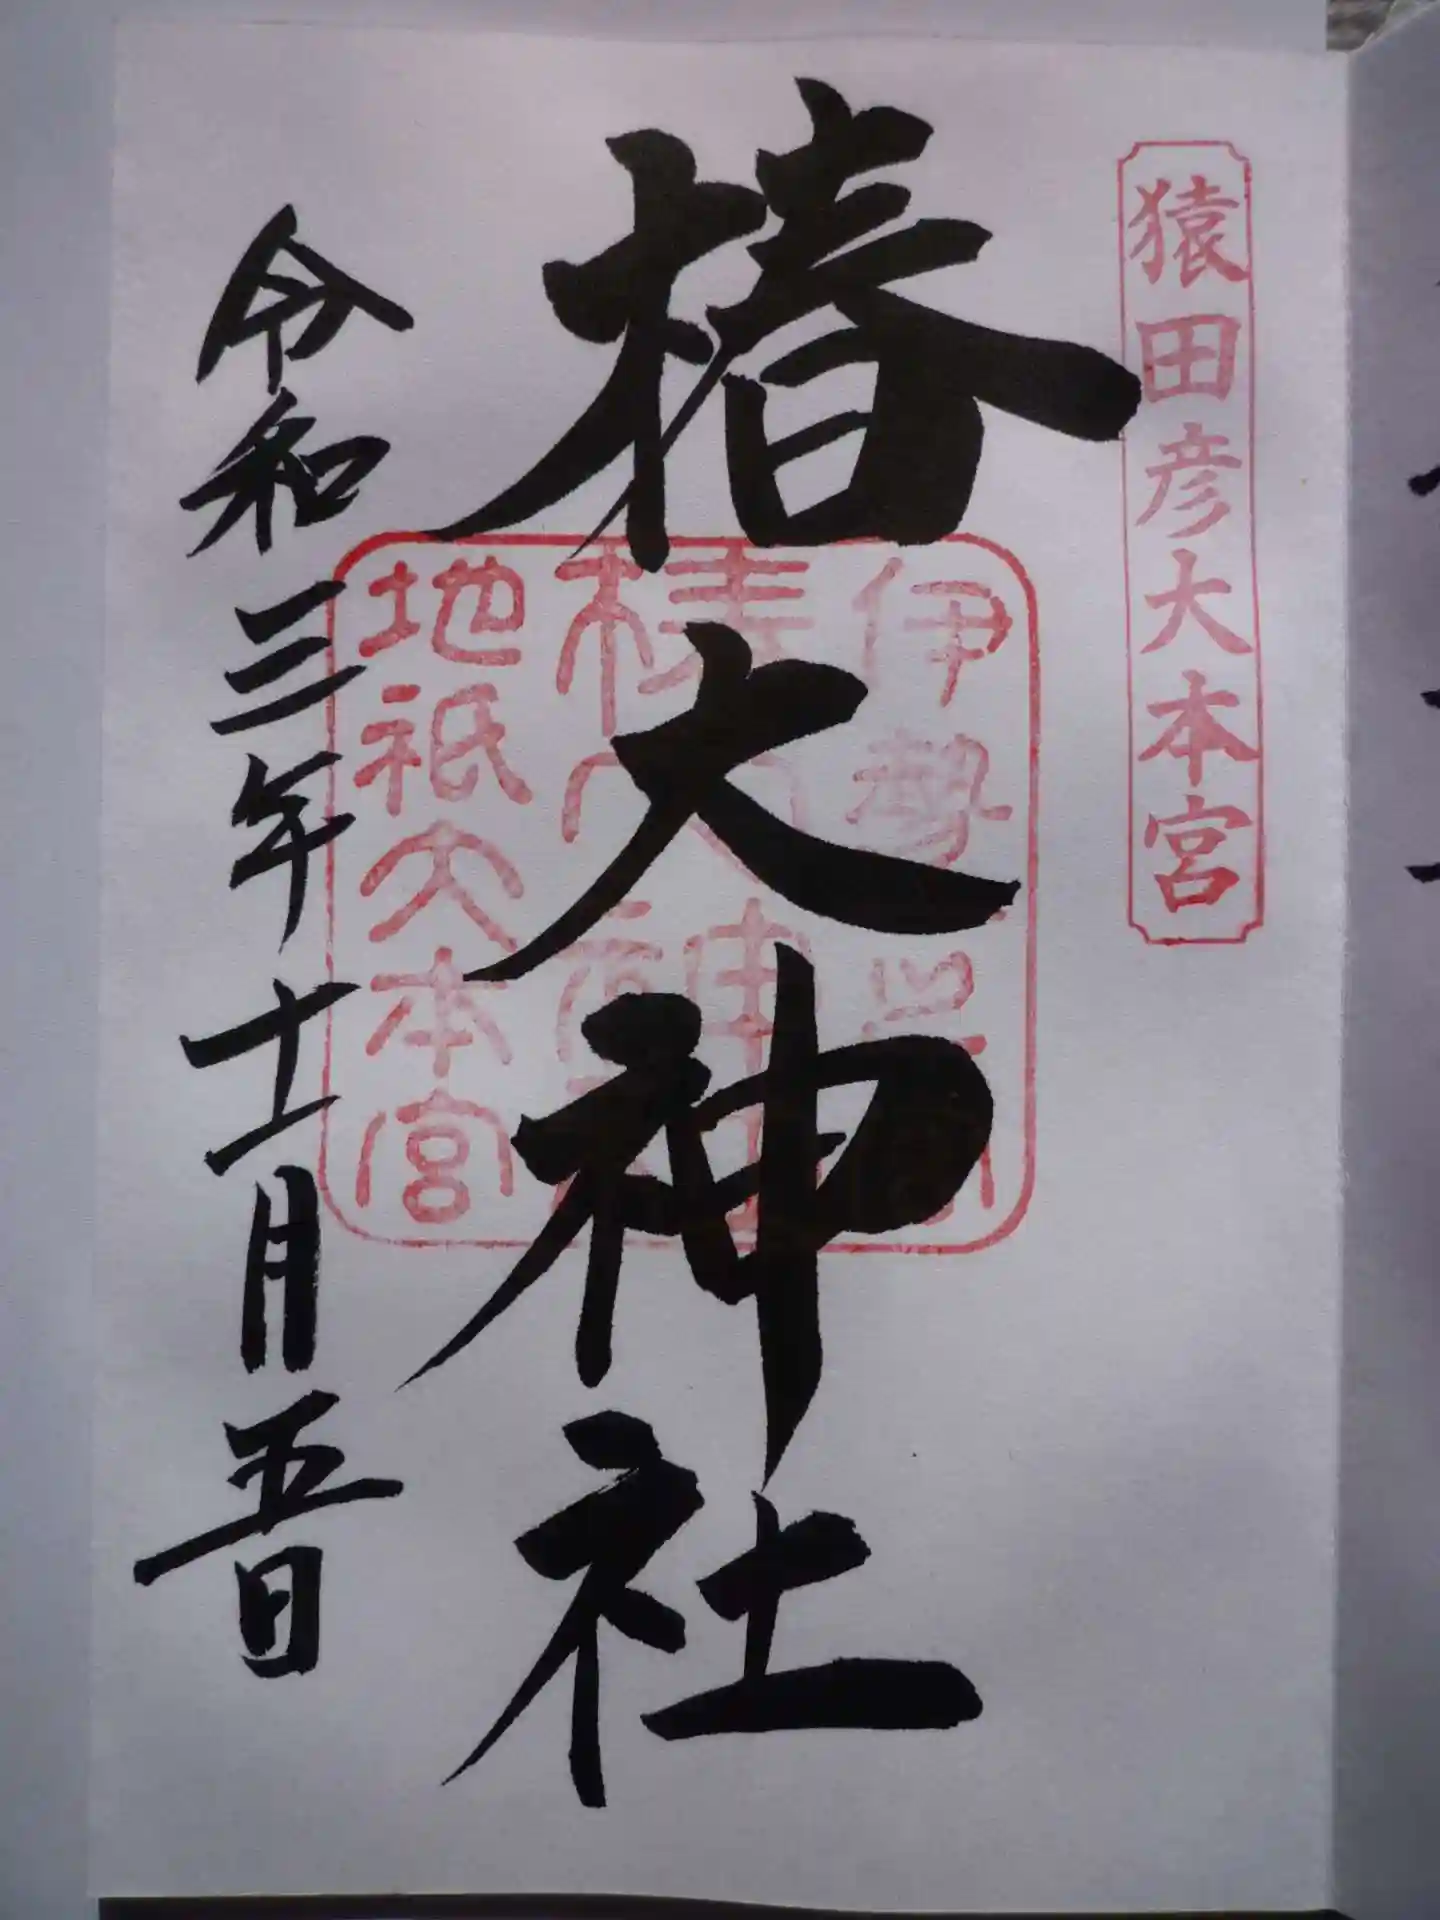 猿田彦大本宮
椿大神社
伊勢之国
椿大神社
地祇大本宮
令和三年十二月五日